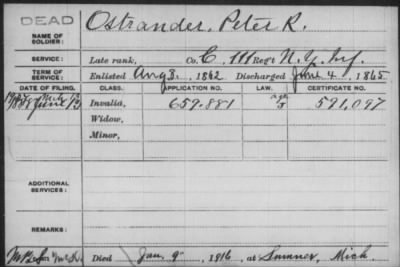 DEAD
NAME OF SOLDIER: Ostrander, Peter R.
SERVICE: Late rank, Co. C, 111 Reg't N.Y. Inf.
TERM OF SERVICE: Enlisted Aug 8, 1862 Discharged June 4, 1865
DATE OF FILING. CLASS. APPLICATION NO. LAW. CERTIFICATE NO.
1888 June Invalid, 659.881 591,097
Widow,
Minor,
ADDITIONAL SERVICES:
REMARKS:
Died Jan. 9" 1916, at Sumner, Mich.